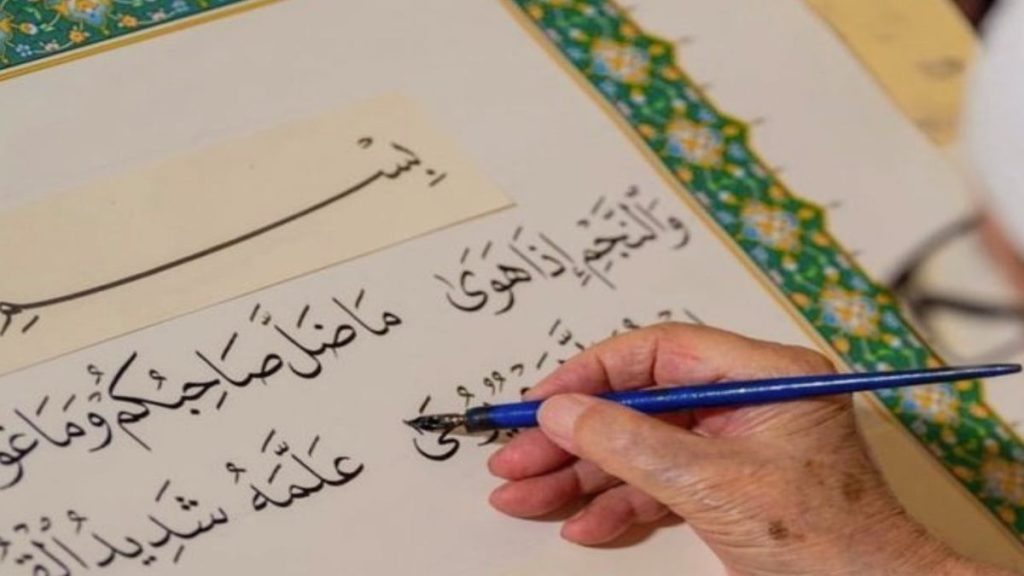 بِسْمِ
وَالنَّجْمِ إِذَا هَوَىٰ مَا ضَلَّ صَاحِبُكُمْ وَمَا غَوَ
يُوحَىٰ عَلَّمَهُ شَدِيدُ الْقُ